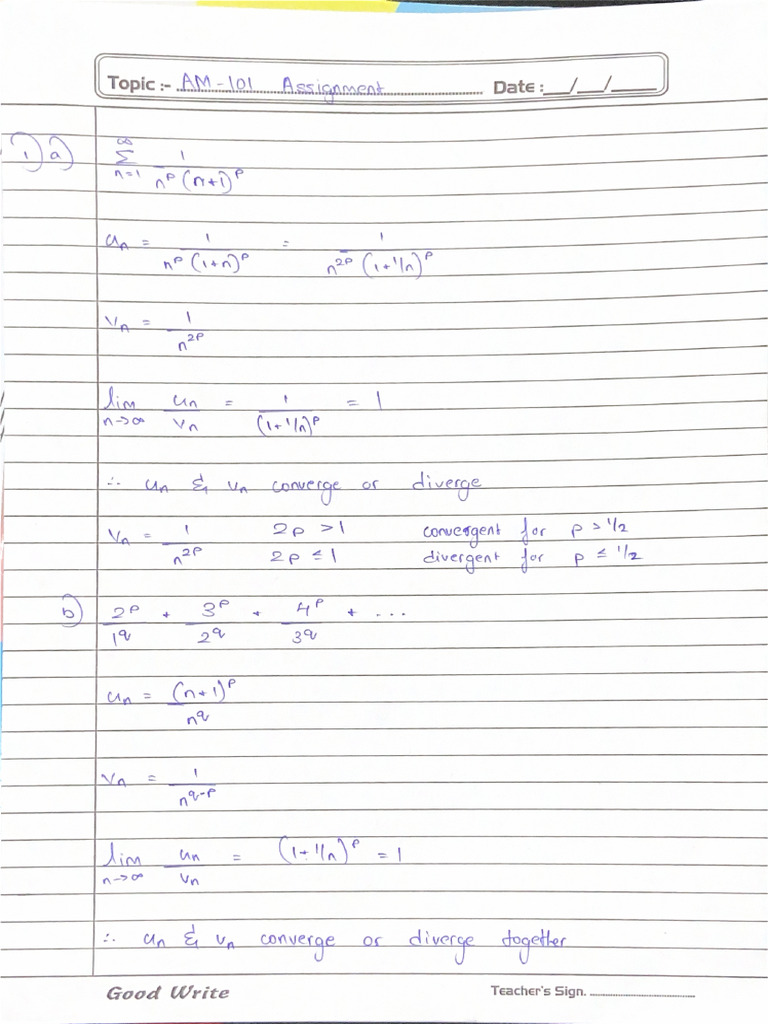 Topic :- AM-101 Assignment Date : __/__/____
1) a) ∞ Σ n=1 1 / n^p (n+1)^p
u_n = 1 / n^p (1+n)^p = 1 / n^2p (1+1/n)^p
v_n = 1 / n^2p
lim n→∞ u_n / v_n = 1 / (1+1/n)^p = 1
∴ u_n & v_n converge or diverge
v_n = 1 / n^2p 2p > 1 convergent for p > 1/2
2p ≤ 1 divergent for p ≤ 1/2
b) 2^p / 1^q + 3^p / 2^q + 4^p / 3^q + ...
u_n = (n+1)^p / n^q
v_n = 1 / n^q-p
lim n→∞ u_n / v_n = (1+1/n)^p = 1
∴ u_n & v_n converge or diverge together
Good Write Teacher's Sign. ....................